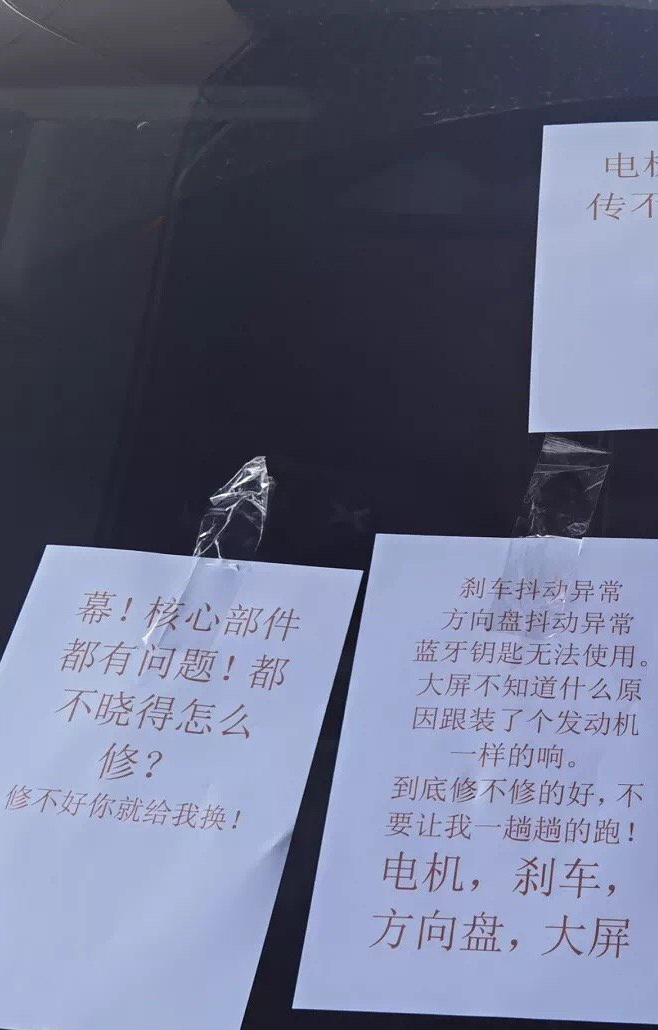 电
传不
幕！核心部件
都有问题！都
不晓得怎么
修？
修不好你就给我换！
刹车抖动异常
方向盘抖动异常
蓝牙钥匙无法使用。
大屏不知道什么原
因跟装了个发动机
一样的响。
到底修不修的好，不
要让我一趟趟的跑！
电机，刹车，
方向盘，大屏